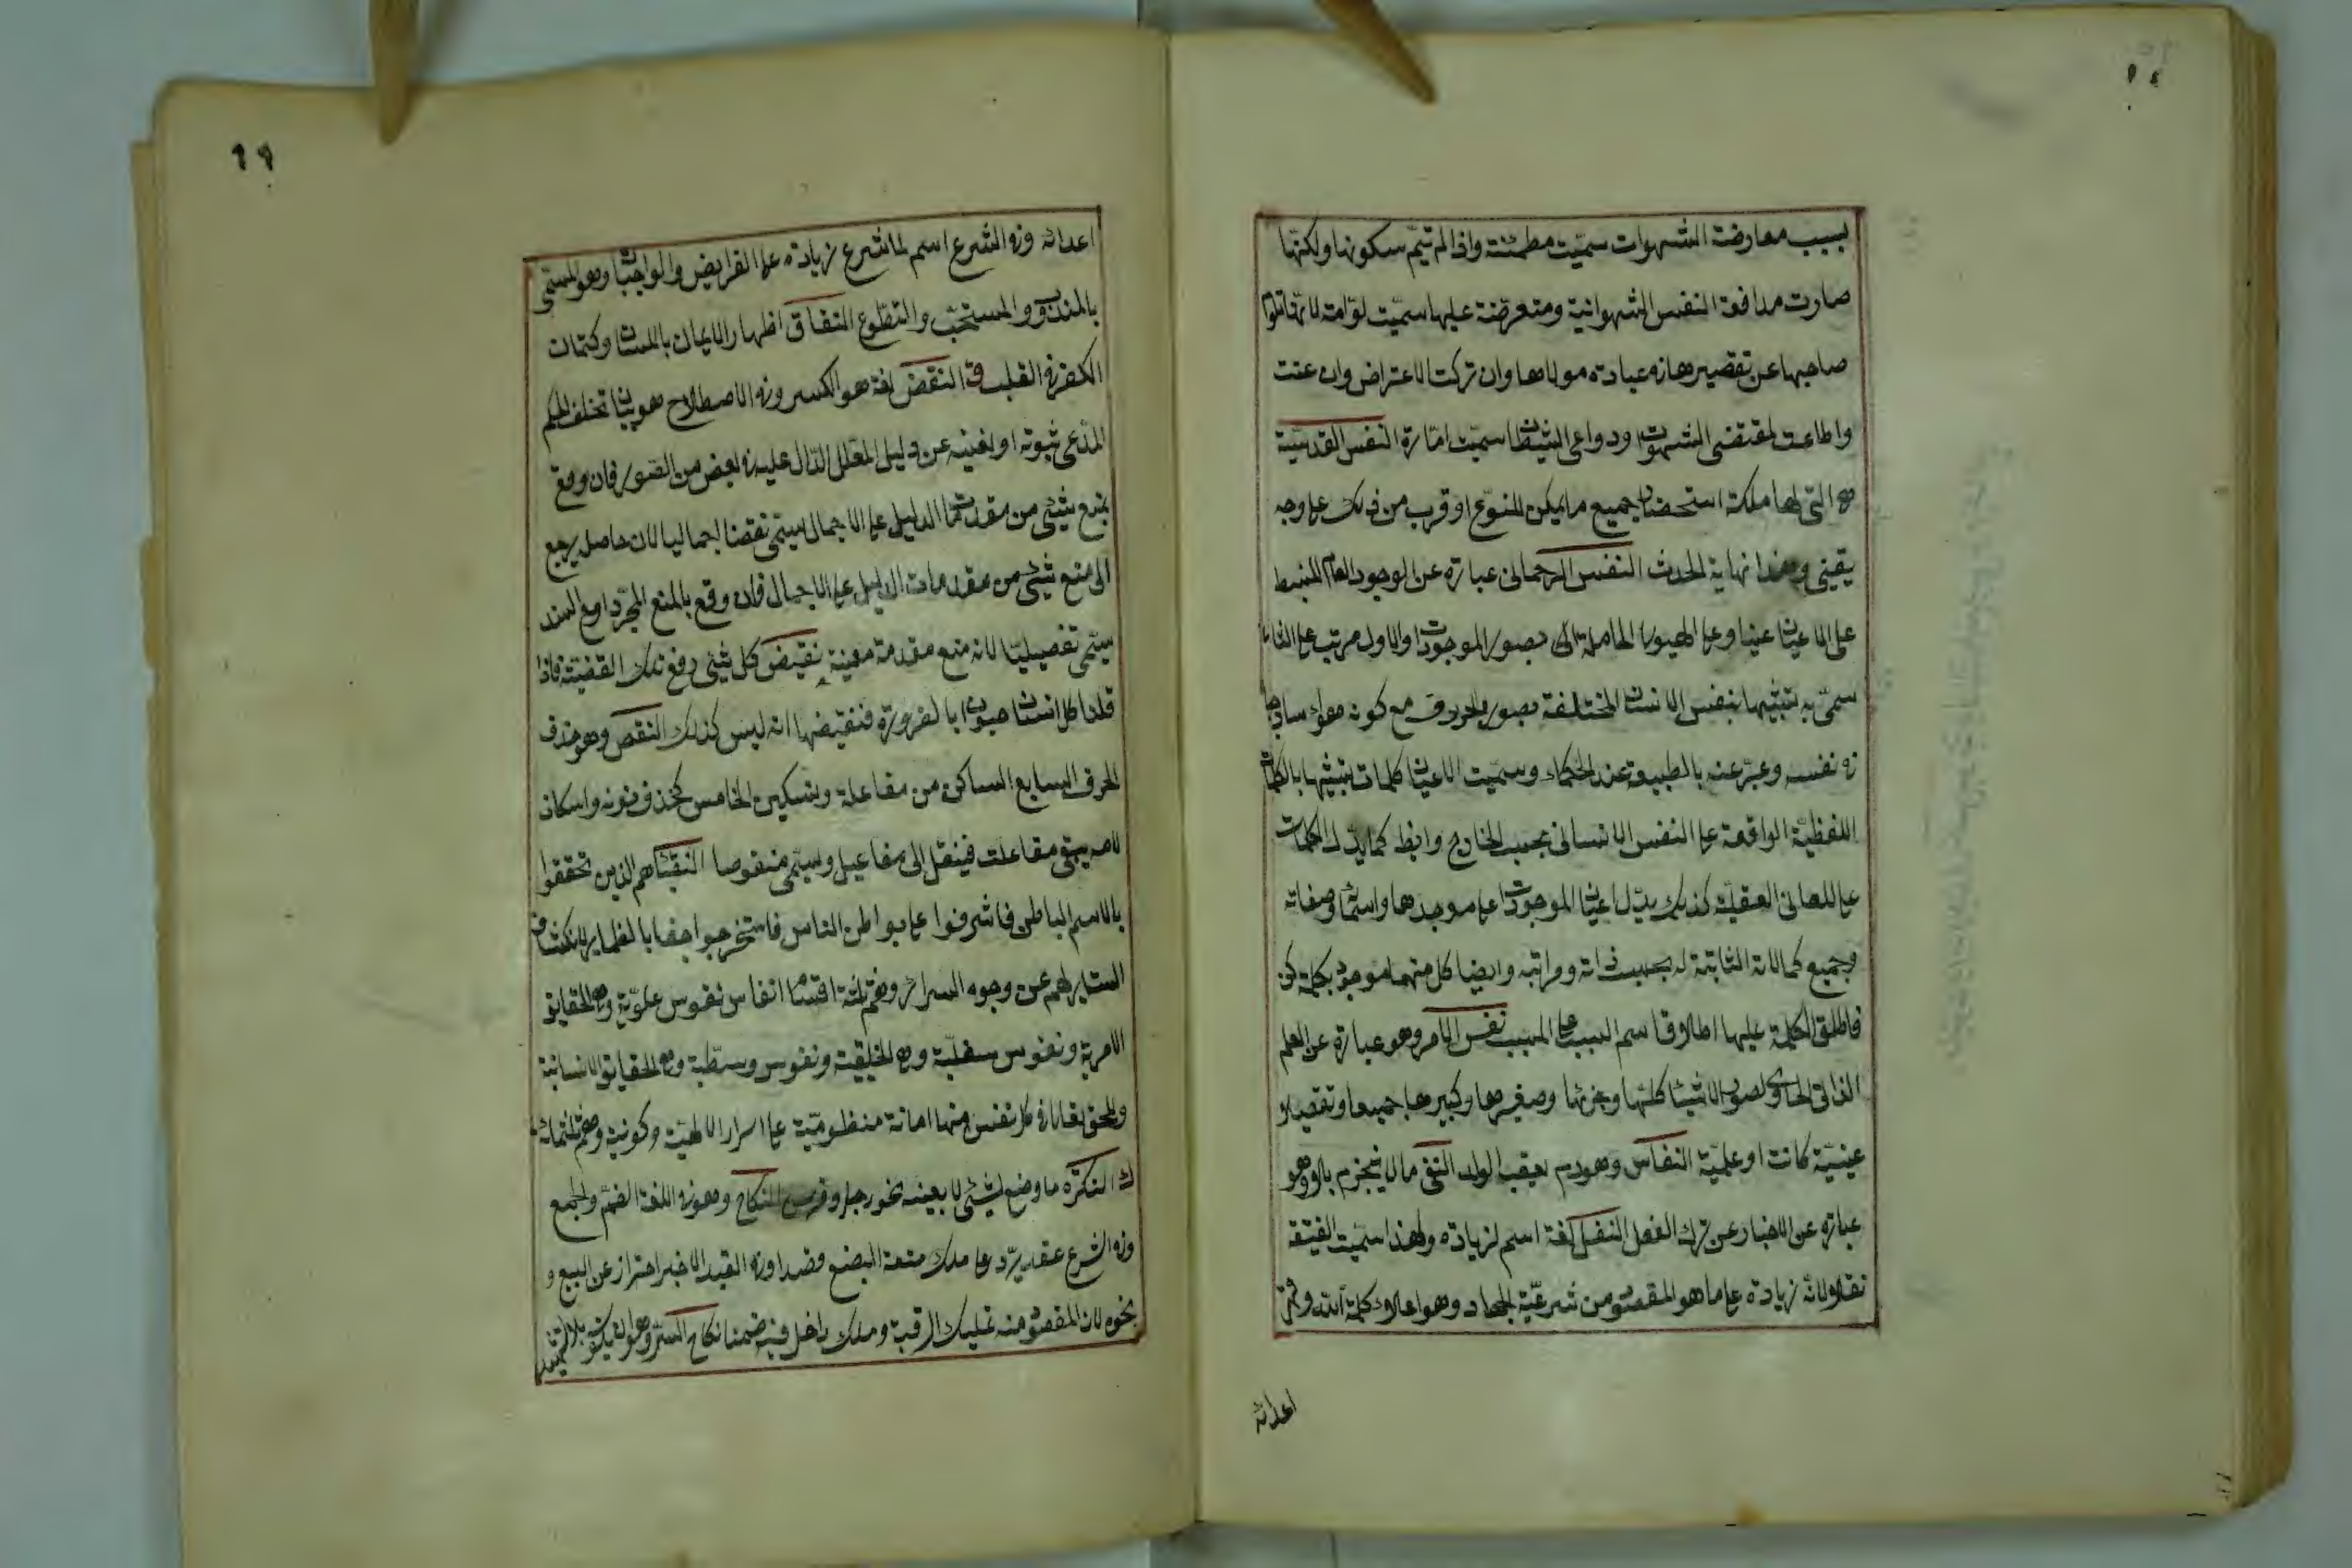 بسبب معارضة الشهوات سميّت مطمئنة واذا لم تيمّ سكونها ولكنّها
صارت مدافعة النفس الشهوانية ومتعرضة عليها سميّت لوّامة لانّها تلوم
صاحبها عن تقصيرها في عبادة مولاها وان تركت الاعتراض وان عنت
واطاعت لمقتضى الشهوات ودواعى الشيطان سميّت امّارة النفس القدسيّة
هي التى لها ملكة استحضار جميع ما يمكن للنوع او قرب من ذلك على وجه
يقينى وهذا نهاية الحدث النفس الرحمانى عبارة عن الوجود العام المنبسط
على الاعيان عينا وعلى الهيولى الحاملة الى بصور الموجودات والاول مرتب على الثانى
سمّى به تشبيها بنفس الانسان المختلفة بصور الحروف مع كونه هواء ساذجا
في نفسه وعبّر عنه بالطبيعة عند الحكماء وسميّت الاعيان كلمات تشبيها بالكلمات
اللفظيّة الواقعة على النفس الانسانى بحسب الخارج وايظ كما يدّل الكلمات
على المعانى العقليّة كذلك يدّل اعيان الموجودات على موجدها واسمائه وصفاته
وجميع كمالاته الثابتة له بحسب ذاته ومراتبه وايضا كل منها موجود بكلمة كن
فاطلق الكلمة عليها اطلاق اسم السبب على المسبب نفس الامر وهو عبارة عن العلم
الذاتى الحاوى لصور الاشياء كلّها وجزئها وصغيرها وكبيرها جميعا وتفصيلا
عينيّة كانت او علميّة النفاس وهو دم يعقب الولد النفى ما لا ينجزم بلا وهو
عبارة عن الاخبار عن ترك الفعل النفل لغة اسم لزيادة ولهذا سميّت الغنيمة
نفلا ولانّه زيادة على ما هو المقصود من شرعيّة الجهاد وهو اعلاء كلمة الله وقهر
اعدائه
٦٩
اعدائه وفي الشرع اسم لما شرع زيادة على الفرايض والواجبات وهو المسمّى
بالمندوب والمستحبّ والتطّوع النفاق اظهار الايمان باللسان وكتمان
الكفر في القلب ق النقض لغة هو الكسر وفي الاصطلاح هو بيان تخلف الحكم
المدّعى ثبوته او نفيه عن دليل المعلل الدّال عليه في بعض من الصور فان وقع
بمنع شيئى من مقدمات الدليل على الاجمال سيمّى نقضا اجماليا لان حاصل يرجع
الى منع شيئى من مقدمات الدليل على الاجمال فان وقع بالمنع المجرّد او مع السند
سيمّى تفصيليّا لانه منع مقدمة معينة نقيض كل شيئى رفع تلك القضيّة فاذا
قلنا كل انسان حيوان بالضرورة فنقيضها انه ليس كذلك النقص وهو حذف
الحرف السابع الساكن من مفاعلة وبتسكين الخامس كحذف نونه واسكان
لامه يبقى مفاعلت فينقل الى مفاعيل وسيمّى منقوصا النقباء هم الذين تحققوا
بالاسم الباطن فاشرفوا على بواطن الناس فاستخرجوا خفايا الضماير لانكشاف
الستاير لهم عن وجوه السرائر وهم ثلثة اقسام انفاس نفوس علويّة وهي الحقايق
الامرية ونفوس سفليّة وهي الخليقية ونفوس وسطّية وهي الحقايق الانسانية
وللحق تعالى في كل نفس منها امانة منظوميّة على اسرار الالهيّة وكونية وهم ثلثمائة
ك النكرة ما وضع لشيئى لا بعينه نحو رجل وفرس النكاح وهو في اللغة الضمّ والجمع
وفي الشرع عقد يرّد على ملك متعة البضع قصدا وفي القيد الاخير احتراز عن البيع و
نحوه لان المقصود منه تمليك الرقبة وملك داخل فيه ضمنا نكاح السّر وهو ان يكون بلا تشهير